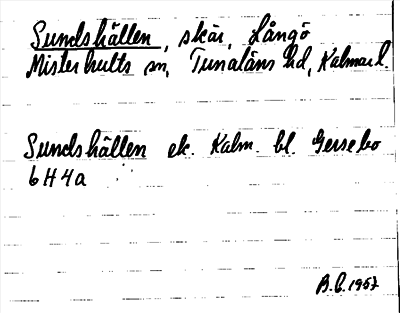 Sundshällen, skär, Långö
Misterhults sn, Tunaläns hd, Kalmar l.
Sundshällen ek. Kalm. bl. Gersebo
6H4a
B.E. 1957